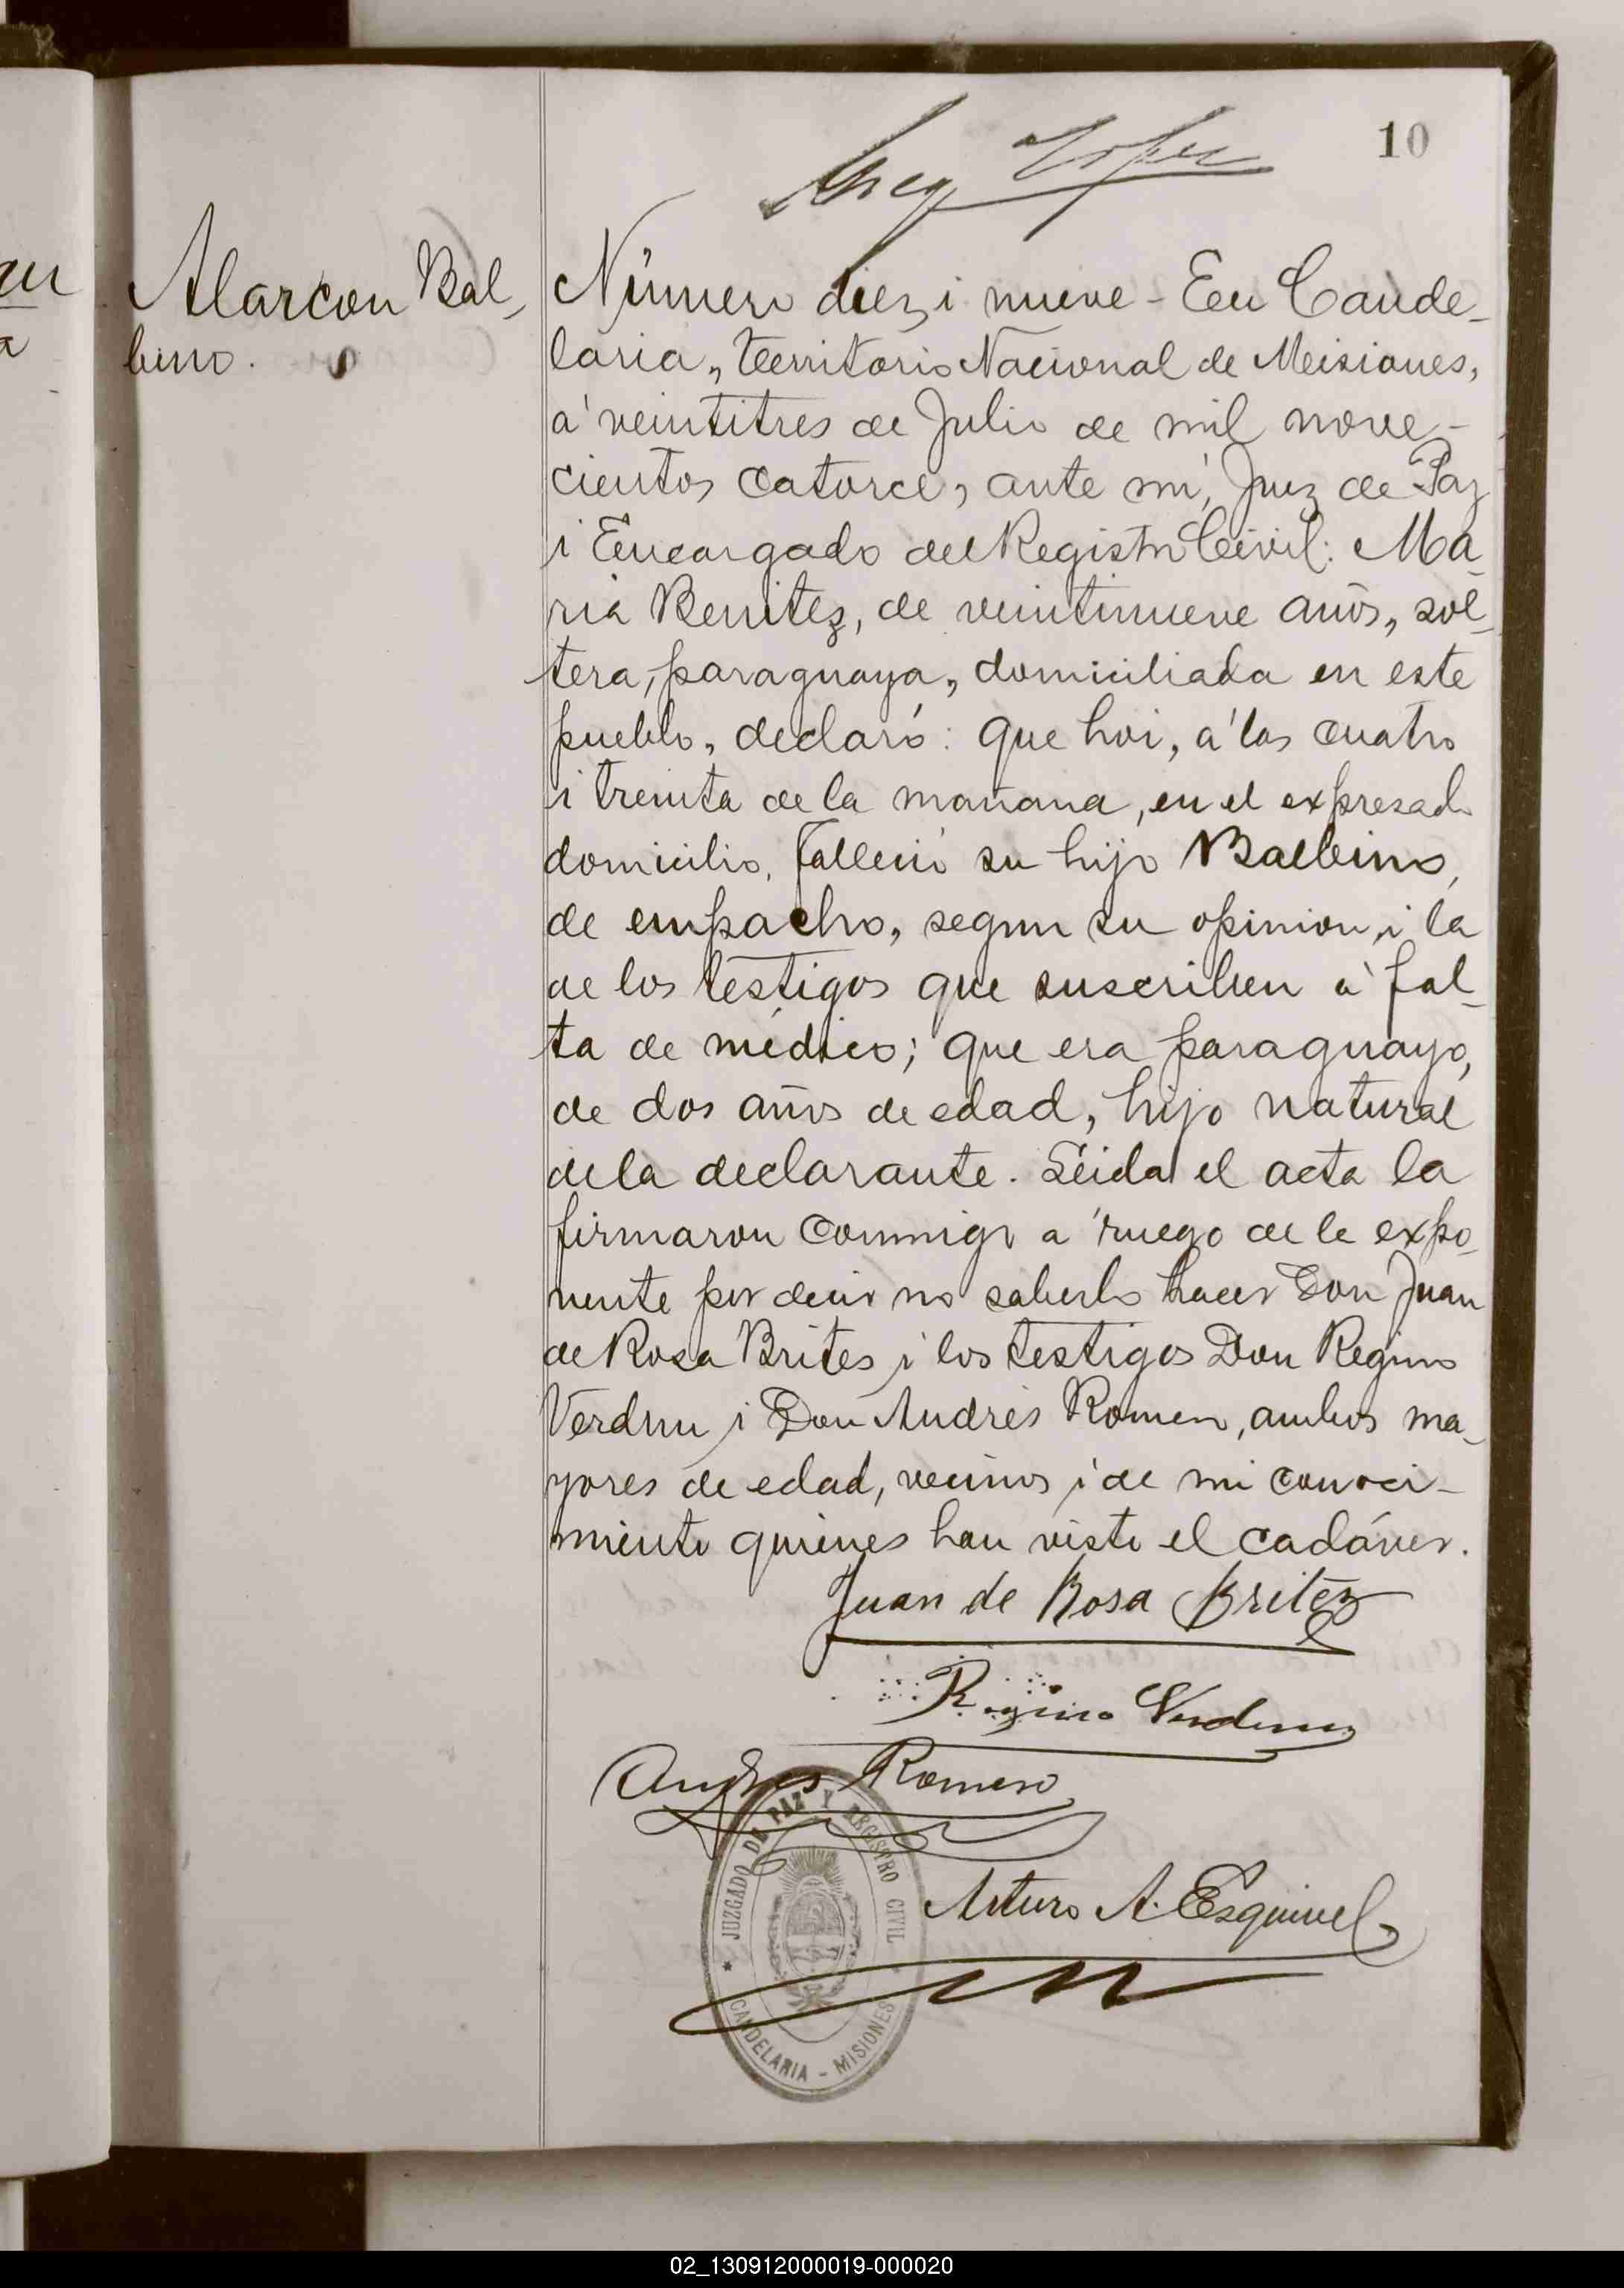 10
Alarcon Bal-
bino.
Número diez i nueve - En Cande-
laria, Territorio Nacional de Misiones,
á veintitres de Julio de mil nove-
cientos catorce, ante mi, Juez de Paz
i Encargado del Registro Civil: Ma-
ria Benitez, de veintinueve años, sol-
tera, paraguaya, domiciliada en este
pueblo, declaró: que hoi, á las cuatro
i treinta de la mañana, en el expresado
domicilio, falleció su hijo Balbino,
de empacho, segun su opinion, i la
de los testigos que suscriben á fal-
ta de médico; que era paraguayo,
de dos años de edad, hijo natural
de la declarante. Léida el acta la
firmaron conmigo a ruego de le expo-
nente por decir no saberlo hacer Don Juan
de Rosa Brites i los testigos Don Regino
Verdun i Don Andrés Romero, ambos ma-
yores de edad, vecinos i de mi conoci-
miento quienes han visto el cadáver.
Juan de Rosa Britéz
Regino Verdun
Andres Romero
Arturo A. Esquivel
JUZGADO DE PAZ Y REGISTRO CIVIL
CANDELARIA - MISIONES
02_130912000019-000020